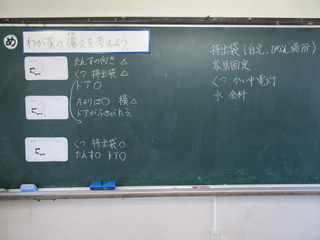 め
わが家の備えを考えよう
たんすの向き △
くつ 持出袋 △
ドア○
Aよりは○ 横△
ドアがふさがれる。
くつ 持出袋○
たんす○ ドア○
持出袋(自宅、ひなん場所)
家具固定
くつ かい中電灯
水 食料